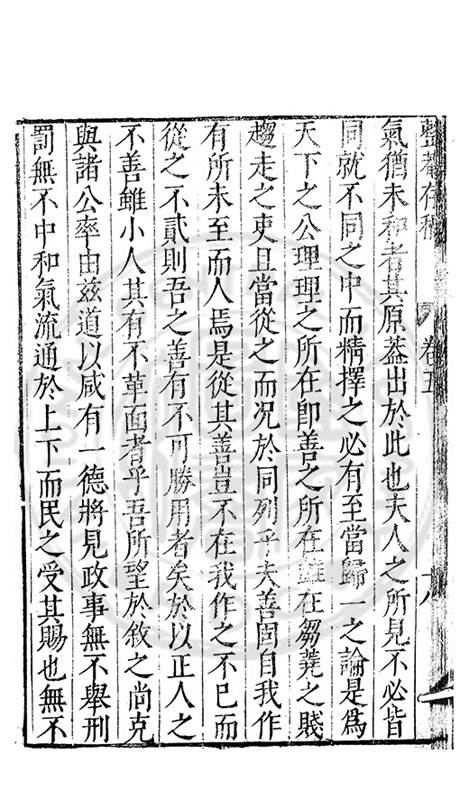 整菴存稿 卷五
氣猶未和者其原葢出於此也夫人之所見不必皆
同就不同之中而精擇之必有至當歸一之論是爲
天下之公理理之所在卽善之所在雖在芻蕘之賤
趨走之吏且當從之而况於同列乎夫善固自我作
有所未至而人焉是從其善豈不在我作之不已而
從之不貳則吾之善有不可勝用者矣於以正人之
不善雖小人其有不革面者乎吾所望於敘之尚克
與諸公率由兹道以咸有一德將見政事無不舉刑
罰無不中和氣流通於上下而民之受其賜也無不